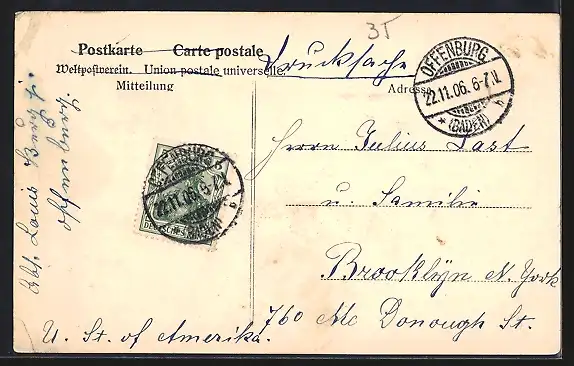 3T
Postkarte Carte postale
Weltpostverein. Union postale universelle.
Drucksache
Mitteilung
Adresse
OFFENBURG
22.11.06. 6-7.N.
* (BADEN) b
Abs. Louis
Offenburg.
OFFENBURG
22.11.06. 6-7.N.
* (BADEN) b
DEUTSCHES
Herrn Julius Last
u. Familie
Brooklÿn N. York
760 Mc Donough St.
U. St. of Amerika.